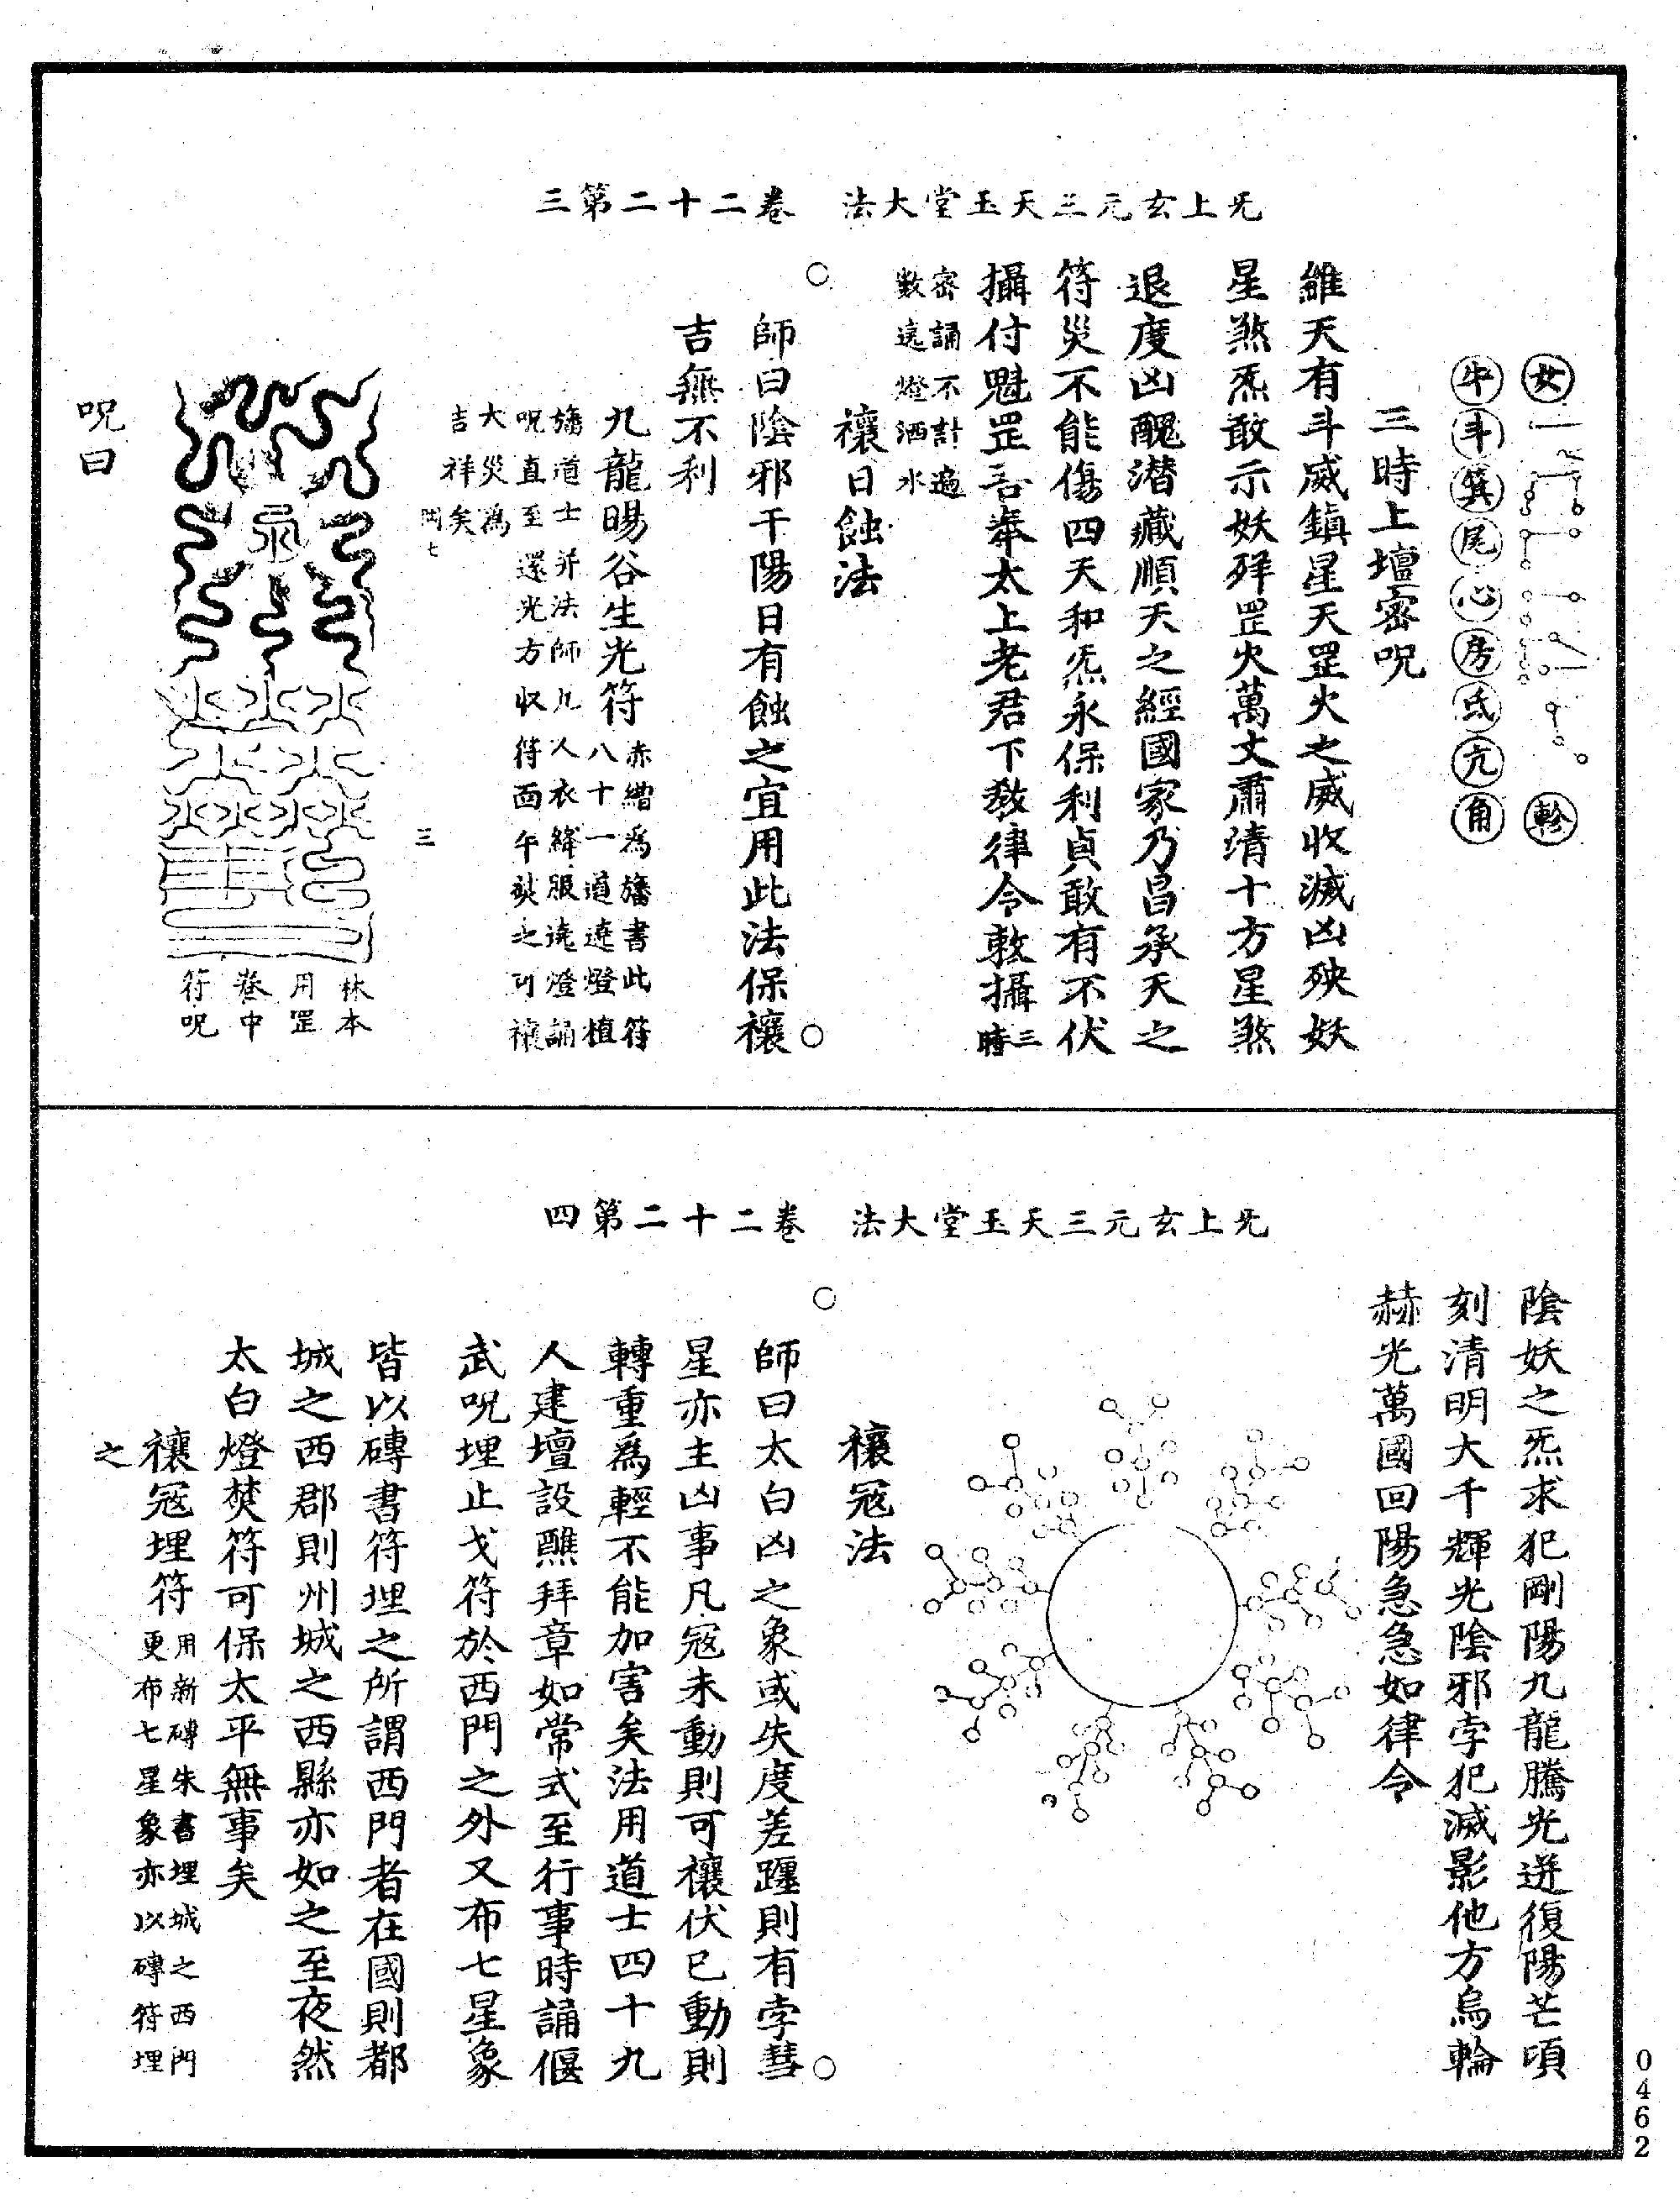 三第二十二卷　法大堂玉天三元玄上旡
女　軫
牛斗箕尾心房氐亢角
三時上壇密呪
維天有斗威鎮星天罡火之威收滅凶殃妖
星煞炁敢示妖殍罡火萬丈肅清十方星煞
退度凶醜潛藏順天之經國家乃昌承天之
符災不能傷四天和炁永保利貞敢有不伏
攝付魁罡吾奉太上老君下敎律令敕攝三時
密誦不計遍
數遶燈洒水
禳日蝕法
師曰陰邪干陽日有蝕之宜用此法保禳
吉無不利
九龍暘谷生光符赤繒爲旛書此符
八十一道遶燈植
旛道士并法師九人衣絳服遶燈誦
呪直至還光方収符面午焚之可禳
大災爲
吉祥矣
罔七
三
林本
用罡
卷中
符呪
呪曰
四第二十二卷　法大堂玉天三元玄上旡
陰妖之炁求犯剛陽九龍騰光迸復陽芒頃
刻清明大千輝光陰邪孛犯滅影他方烏輪
赫光萬國回陽急急如律令
禳冦法
師曰太白凶之象或失度差躔則有孛彗
星亦主凶事凡冦未動則可禳伏已動則
轉重爲輕不能加害矣法用道士四十九
人建壇設醮拜章如常式至行事時誦偃
武呪埋止戈符於西門之外又布七星象
皆以磚書符埋之所謂西門者在國則都
城之西郡則州城之西縣亦如之至夜然
太白燈焚符可保太平無事矣
禳冦埋符用新磚朱書埋城之西門
更布七星象亦以磚符埋
之
0462